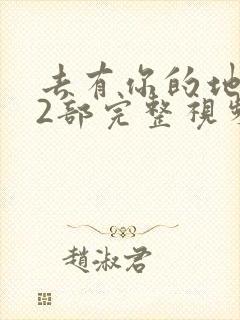 去有你的地
2部完整視
趙淑君